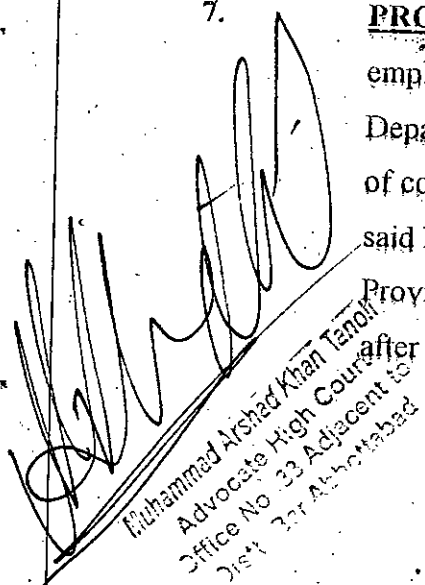 7.
PRO
emp
Depa
of co
said
Provi
after
Muhammad Arshad Khan Tanoli
Advocate High Court
Office No. 33 Adjacent to
Distt. Bar Abbottabad